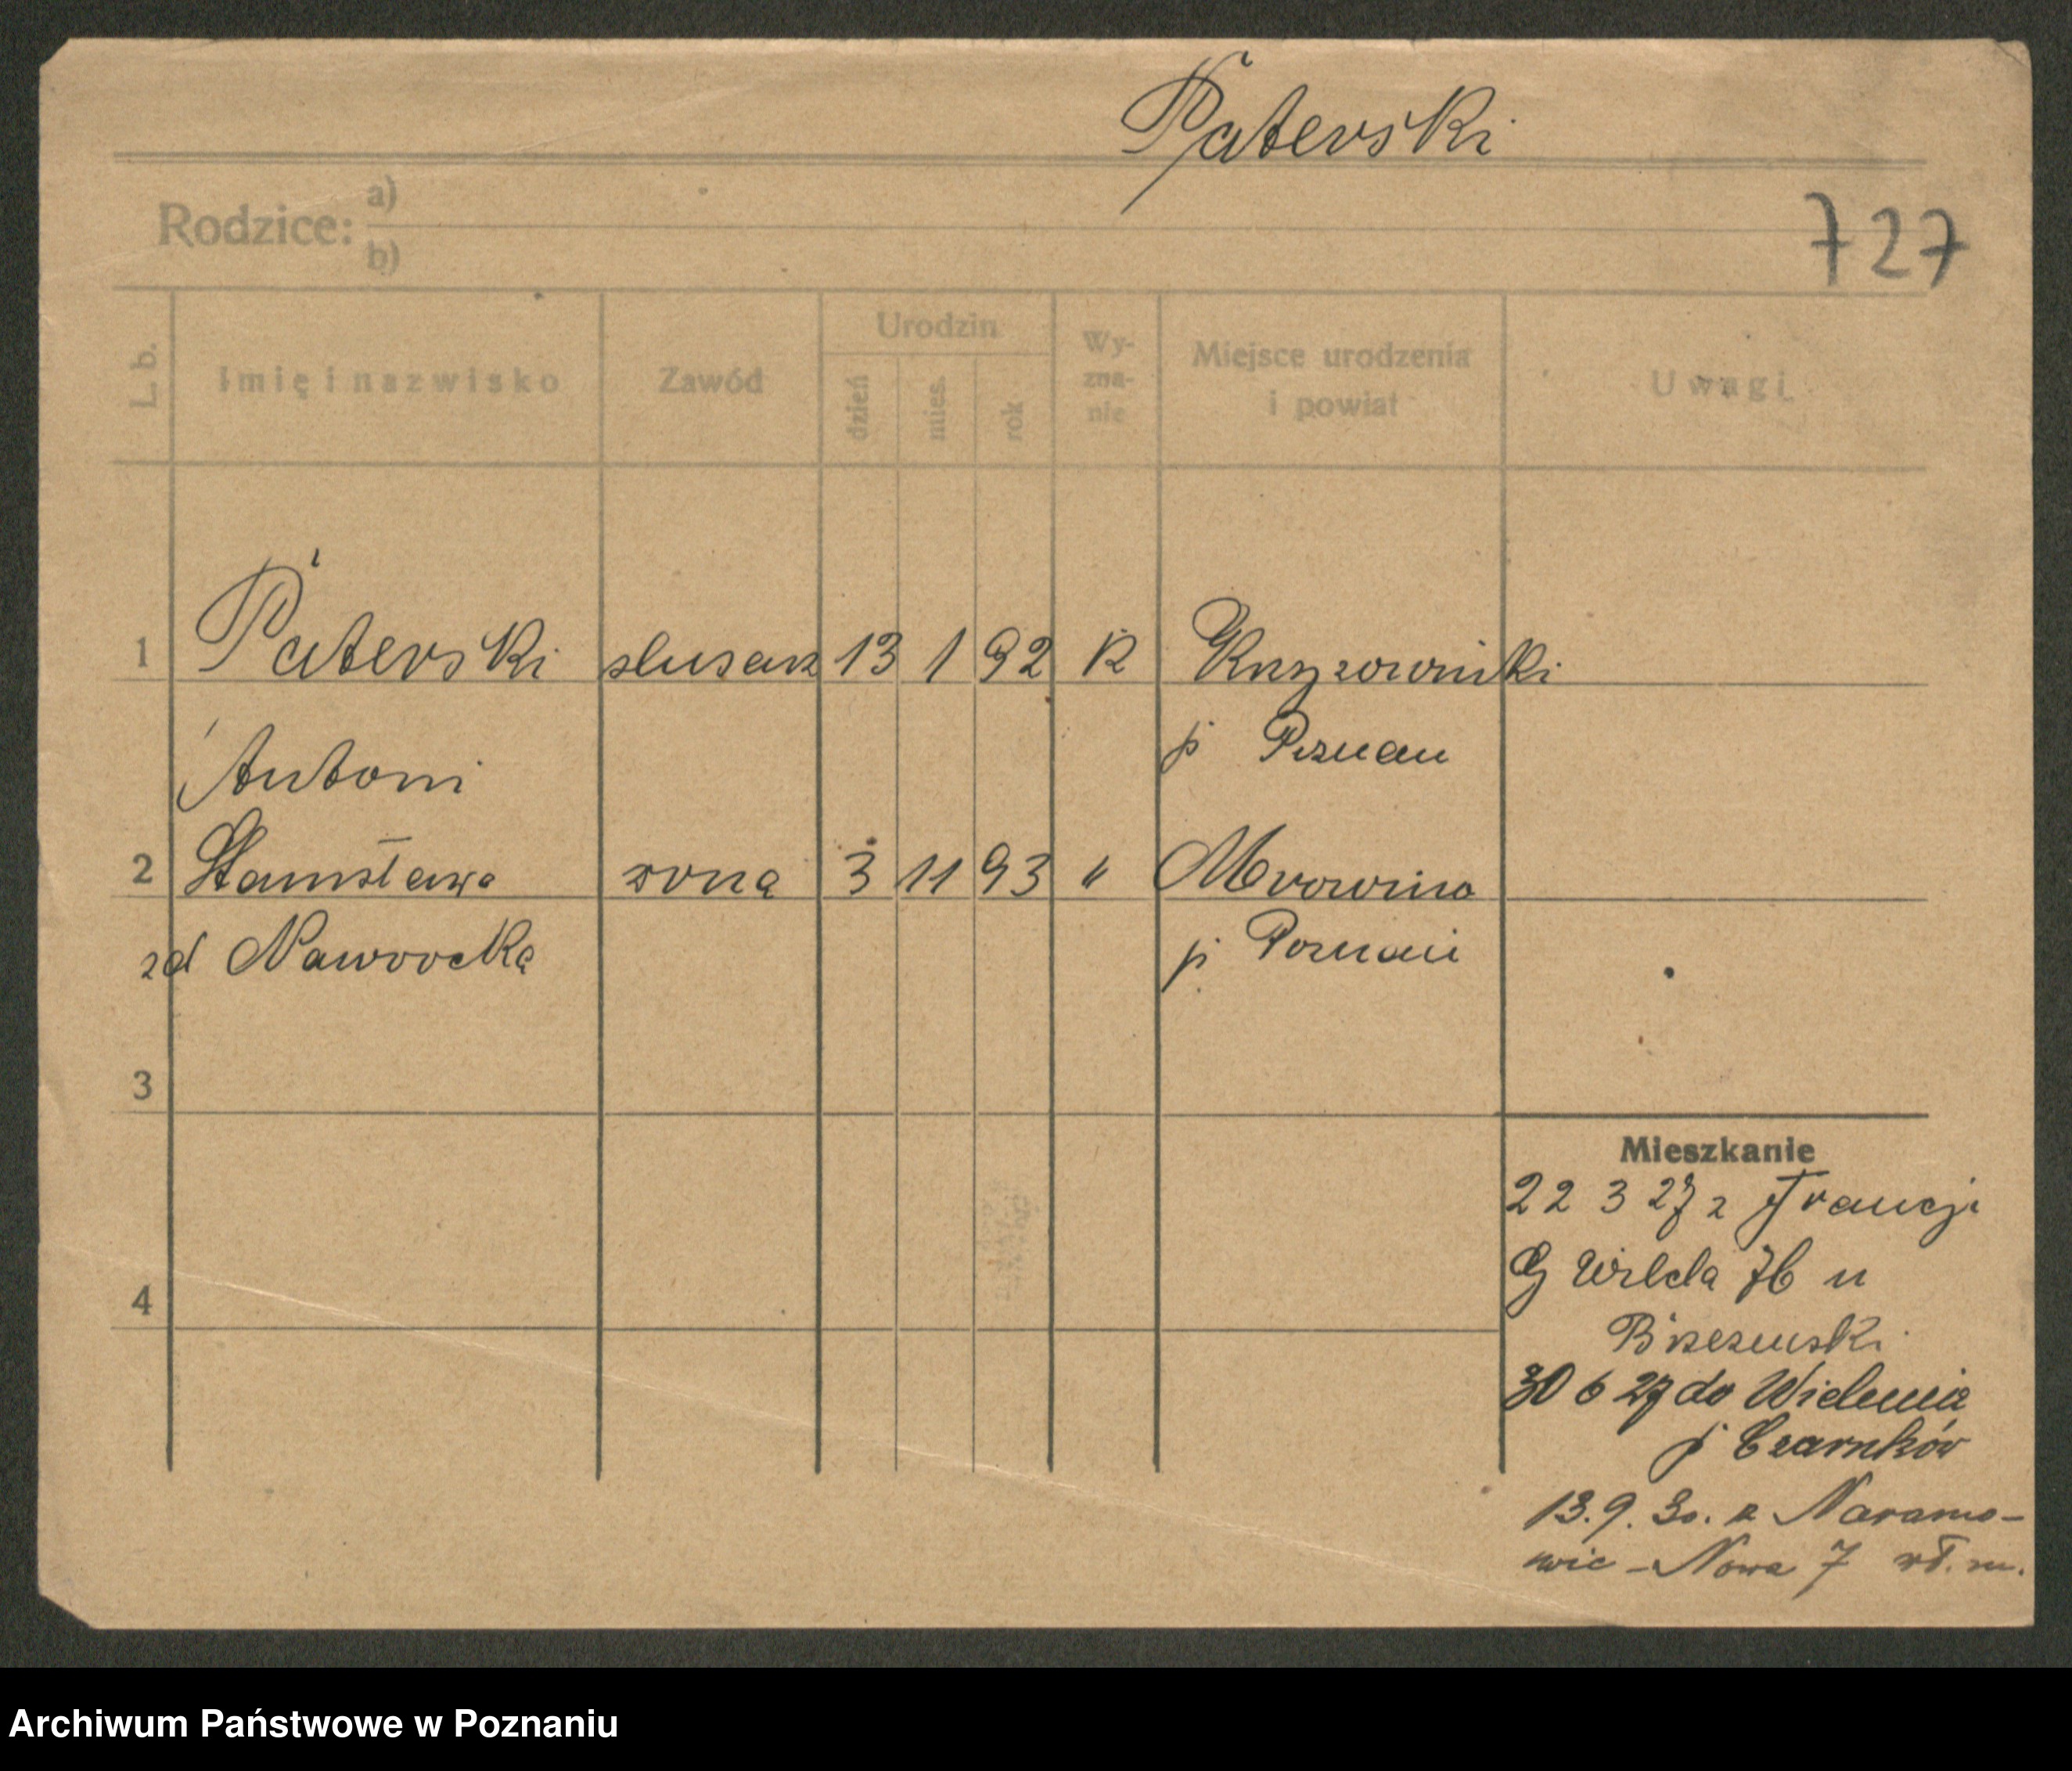 Paterski
Rodzice: a)
b)
727
L. b. Imię i nazwisko Zawód Urodzin dzień mies. rok Wyznanie Miejsce urodzenia i powiat Uwagi
1 Paterski slusarz 13 1 92 K Krzyzowniki
Antoni p Poznan
2 Stanisława zona 3 11 93 " Mrowino
zd Nawrocka p Poznań
3
4
Mieszkanie
22 3 27 z Francji
G Wilda 76 u
Brzezinski
30 6 27 do Wielenia
p Czarnków
13.9.30. z Naramo-
wic - Nowa 7 wł. m.
Archiwum Państwowe w Poznaniu